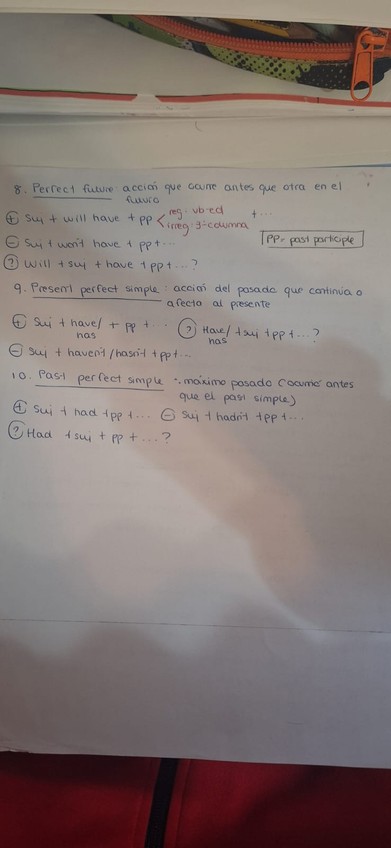 8. Perfect future: acción que ocurre antes que otra en el
futuro
(+) Suj + will have + pp < reg: vb-ed + ...
irreg: 3ª columna
(-) Suj + won't have + pp + ...
PP = past participle
(?) Will + suj + have + pp + ... ?
9. Present perfect simple: acción del pasado que continua o
afecta al presente
(+) Suj + have/ + pp + ... (?) Have/ + suj + pp + ... ?
has has
(-) Suj + haven't / hasn't + pp + ...
10. Past perfect simple: máximo pasado (ocurre antes
que el past simple)
(+) Suj + had + pp + ... (-) Suj + hadn't + pp + ...
(?) Had + suj + pp + ... ?